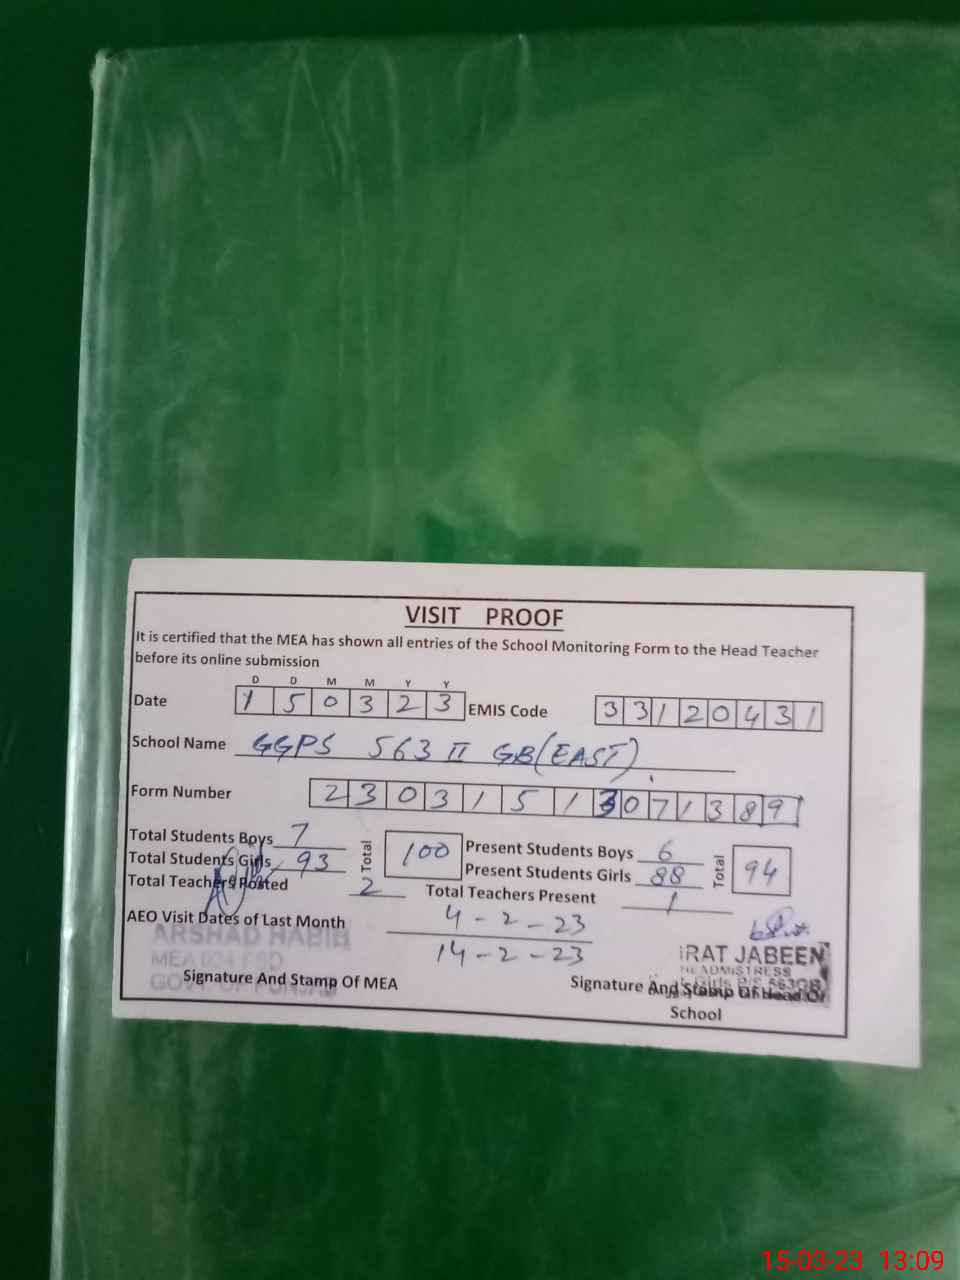 VISIT PROOF
It is certified that the MEA has shown all entries of the School Monitoring Form to the Head Teacher
before its online submission
D D M M Y Y
Date 1 5 0 3 2 3 EMIS Code 3 3 1 2 0 4 3 1
School Name GGPS 563 II GB (EAST)
Form Number 2 3 0 3 1 5 1 3 0 7 1 3 8 9
Total Students Boys 7 Total 100 Present Students Boys 6 Total 94
Total Students Girls 93 Present Students Girls 88
Total Teachers Posted 2 Total Teachers Present 1
AEO Visit Dates of Last Month 4-2-23
14-2-23
ARSHAD HABIB
MEA 024 FSD
GOVT. OF PUNJAB
Signature And Stamp Of MEA
IRAT JABEEN
HEADMISTRESS
Girls P/S 563GB
Signature And Stamp Of Head Of
School
15-03-23 13:09